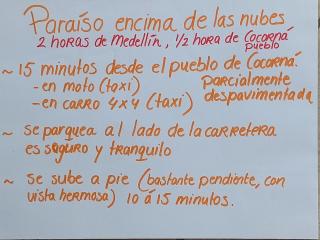 Paraíso encima de las nubes
2 horas de Medellín, 1/2 hora de Cocorná
pueblo
~ 15 minutos desde el pueblo de Cocorná.
- en moto (taxi) parcialmente
- en carro 4x4 (taxi) despavimentada
~ se parquea al lado de la carretera
es seguro y tranquilo
~ se sube a pie (bastante pendiente, con
vista hermosa) 10 á 15 minutos.